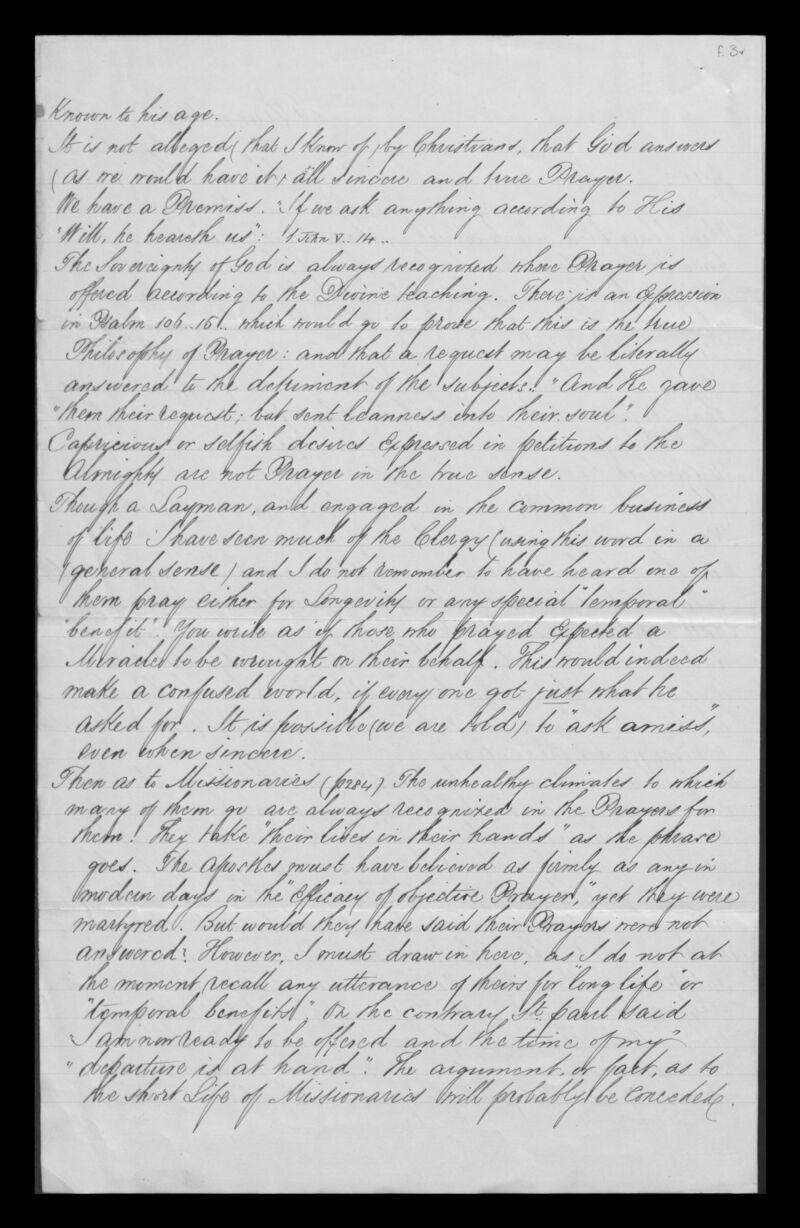 f. 3v
Known to his age.
It is not alleged (that I know of) by Christians, that God answers
(as we would have it) all sincere and true Prayer.
We have a Premiss. "If we ask anything according to His
"Will, he heareth us": 1 John V.. 14..
The Sovereignty of God is always recognized where Prayer is
offered according to the Divine teaching. There is an Expression
in Psalm 106..15.. which would go to prove that this is the true
Philosophy of Prayer: and that a request may be literally
answered to the detriment of the subjects: "And He gave
"them their request; but sent leanness into their soul".
Capricious or selfish desires Expressed in petitions to the
Almighty are not Prayer in the true sense.
Though a Layman, and engaged in the common business
of life I have seen much of the Clergy (using this word in a
(general sense) and I do not remember to have heard one of
them pray either for Longevity or any special "temporal"
"benefit". You write as if those who prayed Expected a
Miracle to be wrought on their behalf. This would indeed
make a confused world, if every one got just what he
asked for. It is possible (we are told) to "ask amiss",
even when sincere.
Then as to Missionaries (p284) The unhealthy climates to which
many of them go are always recognized in the Prayers for
them. They take "their lives in their hands" as the phrase
goes. The Apostles must have believed as firmly as any in
modern days in the "Efficacy of objective Prayer," yet they were
martyred. But would they have said their Prayers were not
answered? However, I must draw in here, as I do not at
the moment recall any utterance of theirs for "long life" or
"temporal benefits". On the contrary St. Paul said
"I am now ready to be offered and the time of my"
"departure is at hand". The argument, or fact, as to
the short Life of Missionaries will probably be conceded.